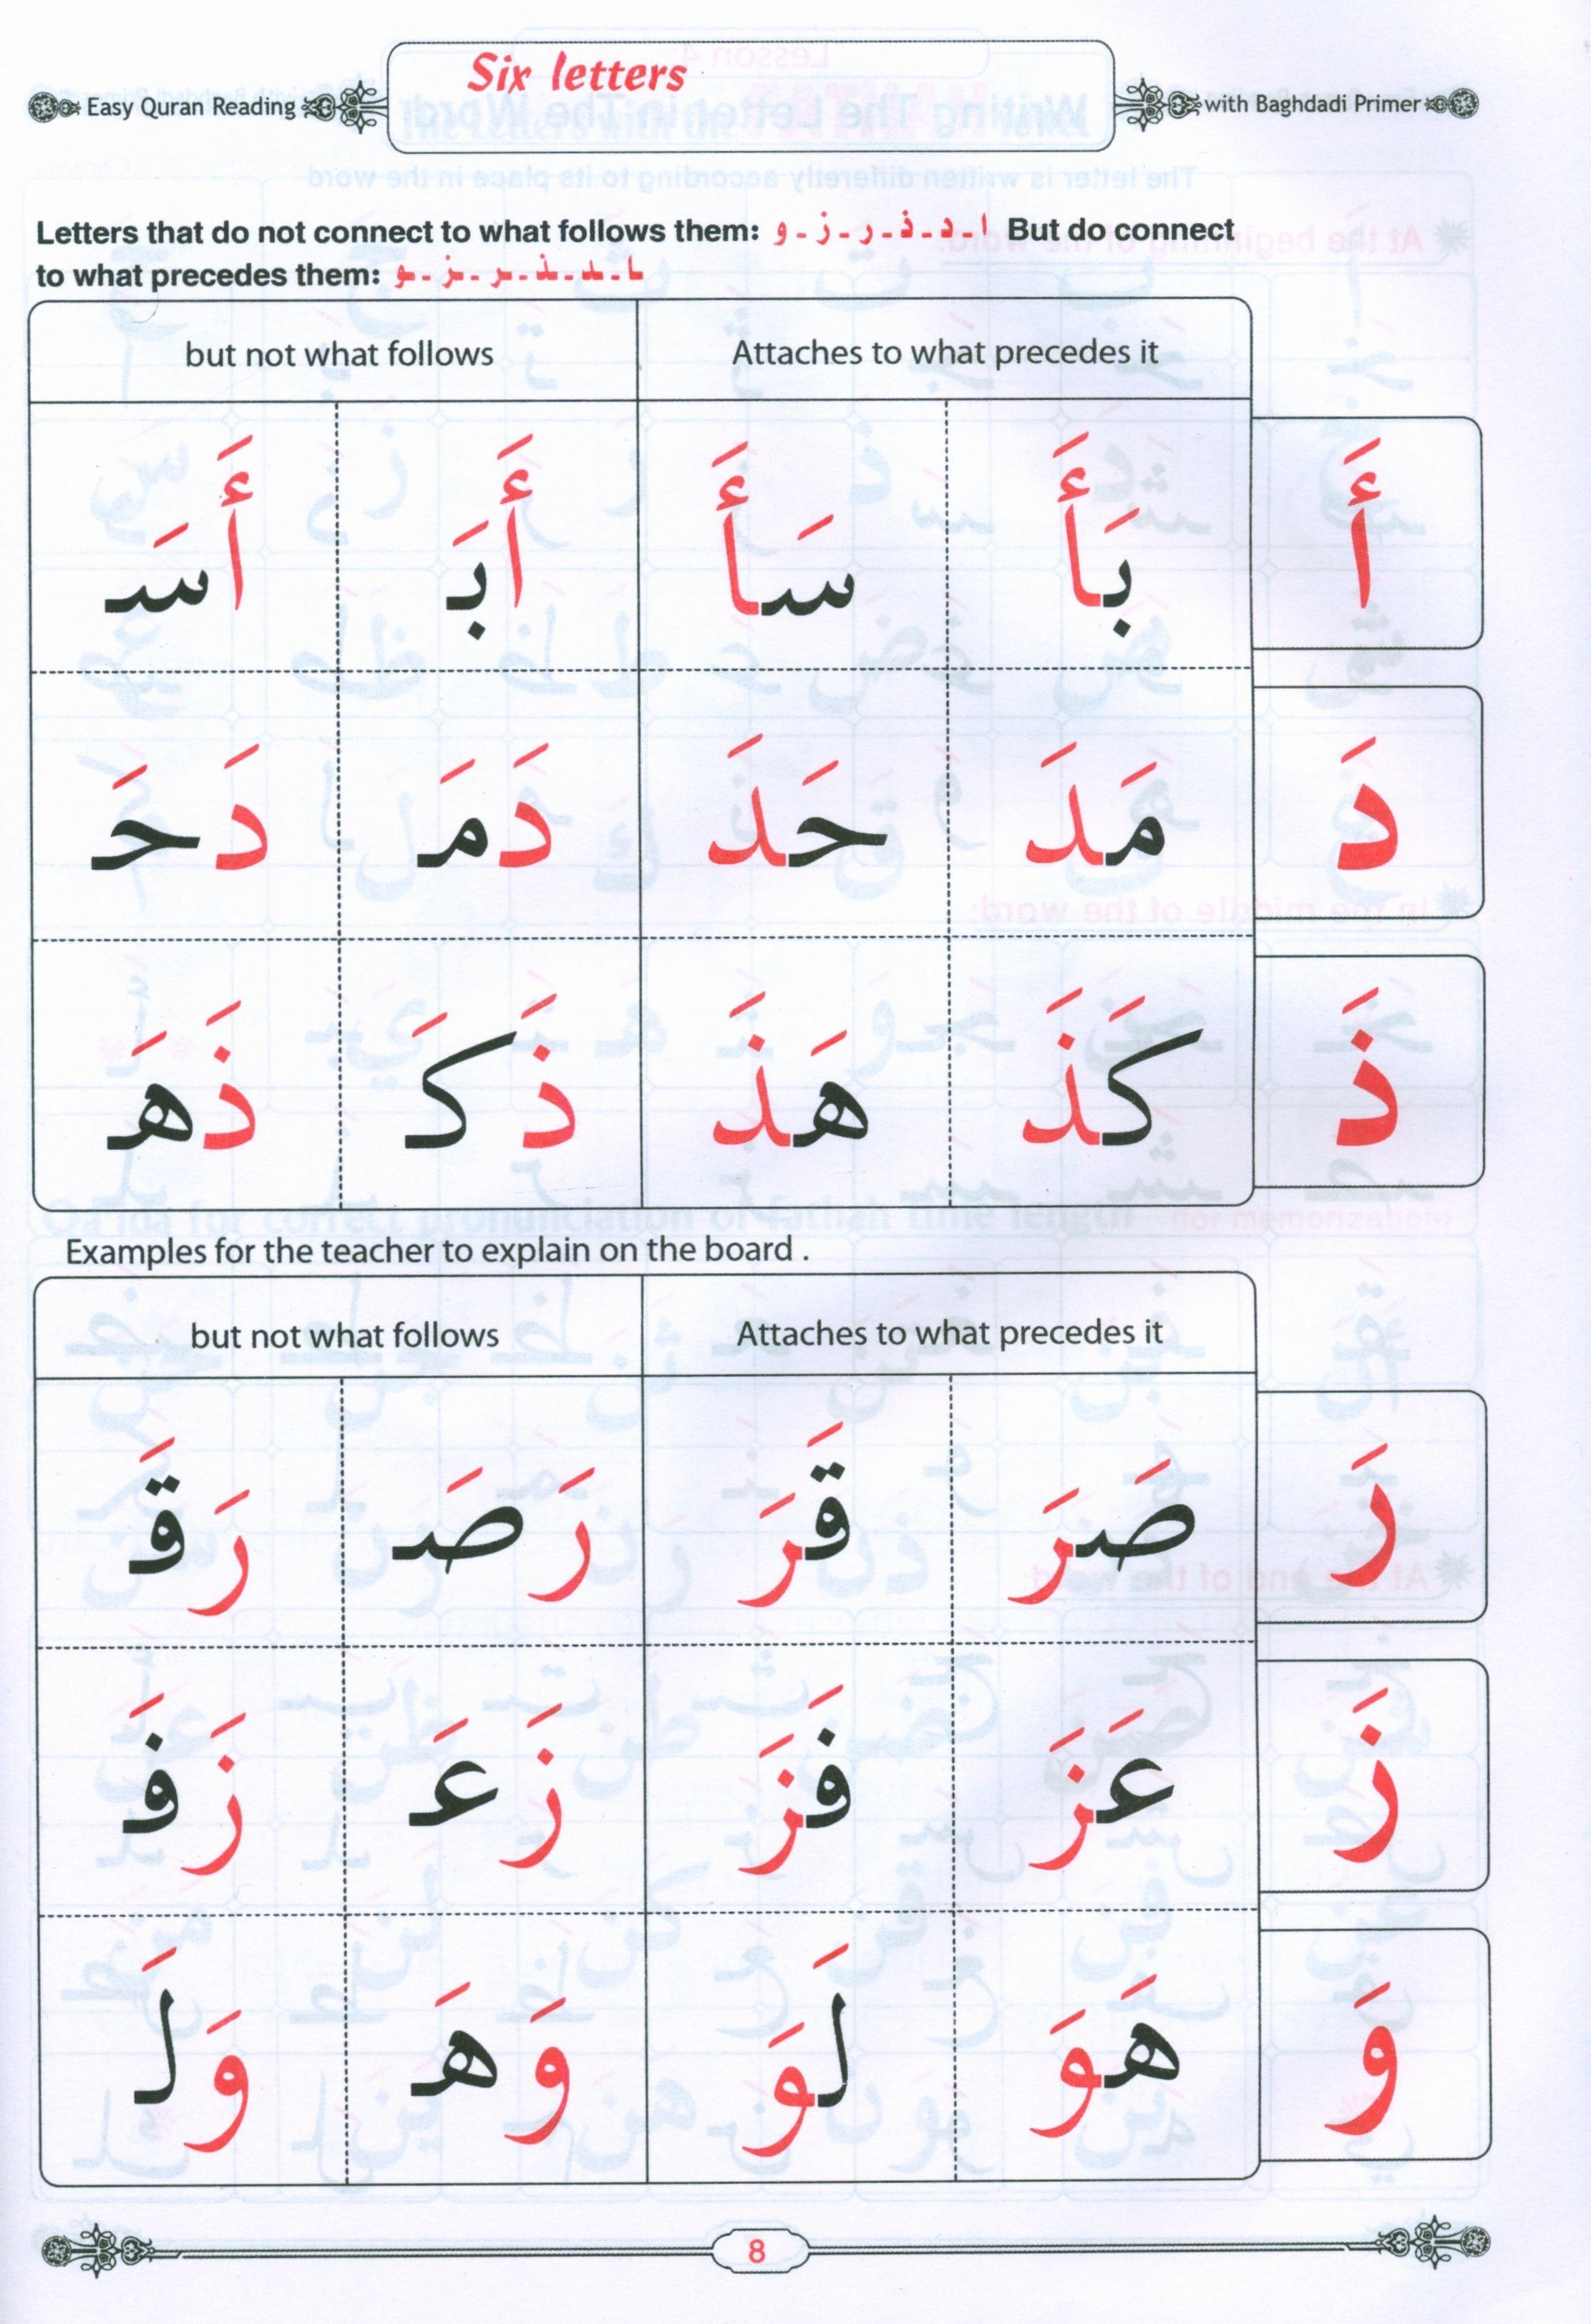 Six letters
Easy Quran Reading with Baghdadi Primer
Letters that do not connect to what follows them: ا - د - ذ - ر - ز - و But do connect
to what precedes them: ـا - ـد - ـذ - ـر - ـز - ـو
but not what follows Attaches to what precedes it
أَ بَأَ سَأَ أَبَـ أَسَـ
دَ مَدَ حَدَ دَمَـ دَحَـ
ذَ كَذَ هَذَ ذَكَـ ذَهَـ
Examples for the teacher to explain on the board .
but not what follows Attaches to what precedes it
رَ صَرَ قَرَ رَصَـ رَقَـ
زَ عَزَ فَزَ زَعَـ زَفَـ
وَ هَوَ لَوَ وَهَـ وَلَـ
8